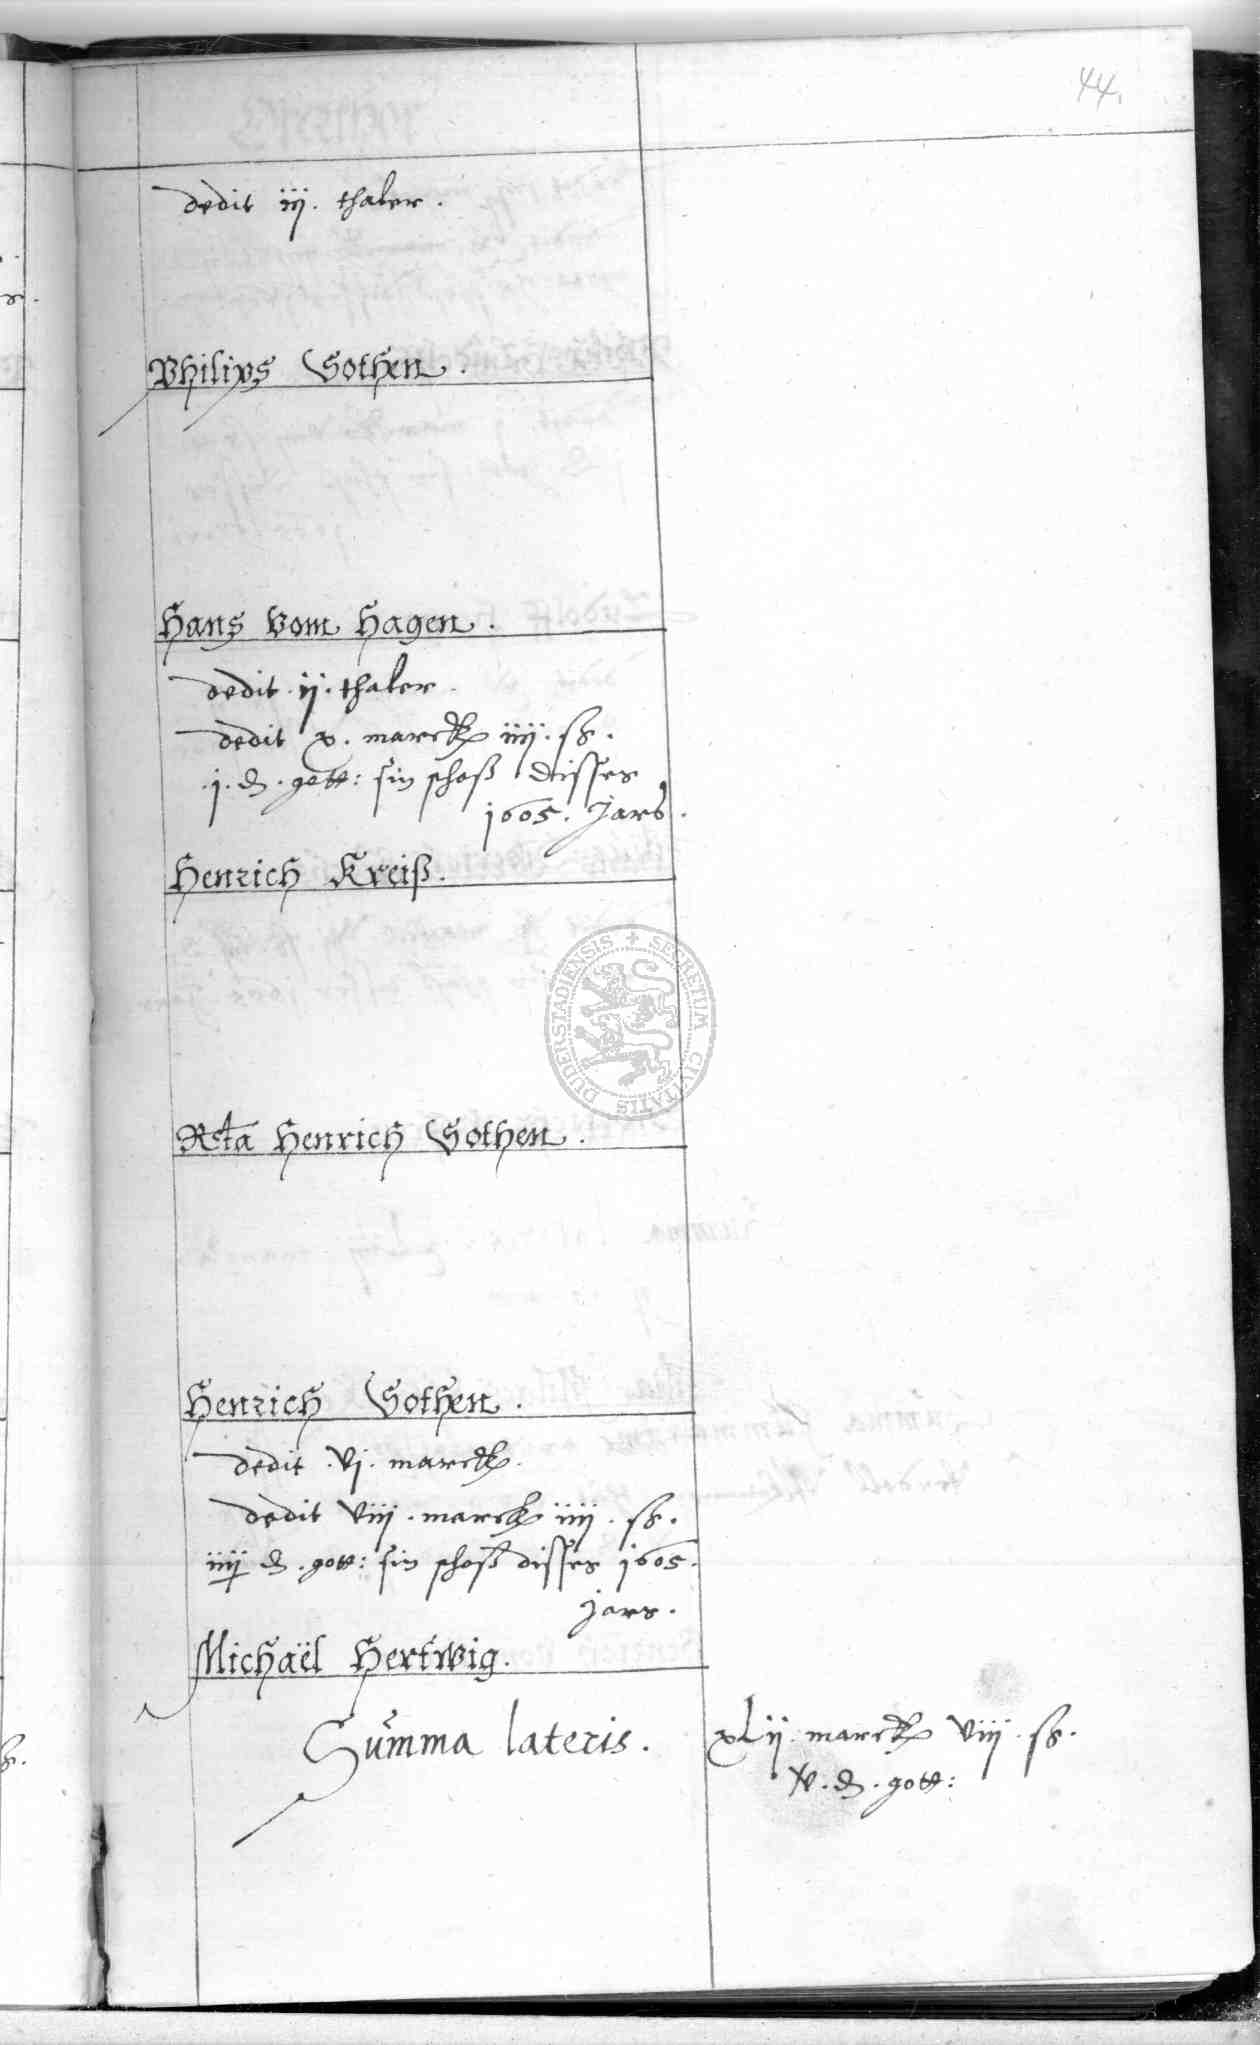 44.
dedit iij. thaler.
Philips Gothen.
Hans vom Hagen.
dedit .ij. thaler.
dedit x. marck iiij. ß.
.j. d. gott: sin schoß disses
1605. Jars.
Henrich Kreiß.
Rcta Henrich Gothen.
Henrich Gothen.
dedit .vj. marck.
dedit viij. marck iiij. ß.
iiij d. gott: sin schoß disses 1605.
Jars.
Michaël Hertwig.
Summa lateris. xLij marck viij. ß.
v. d. gott:
SECRETUM CIVITATIS DUDERSTADIENSIS